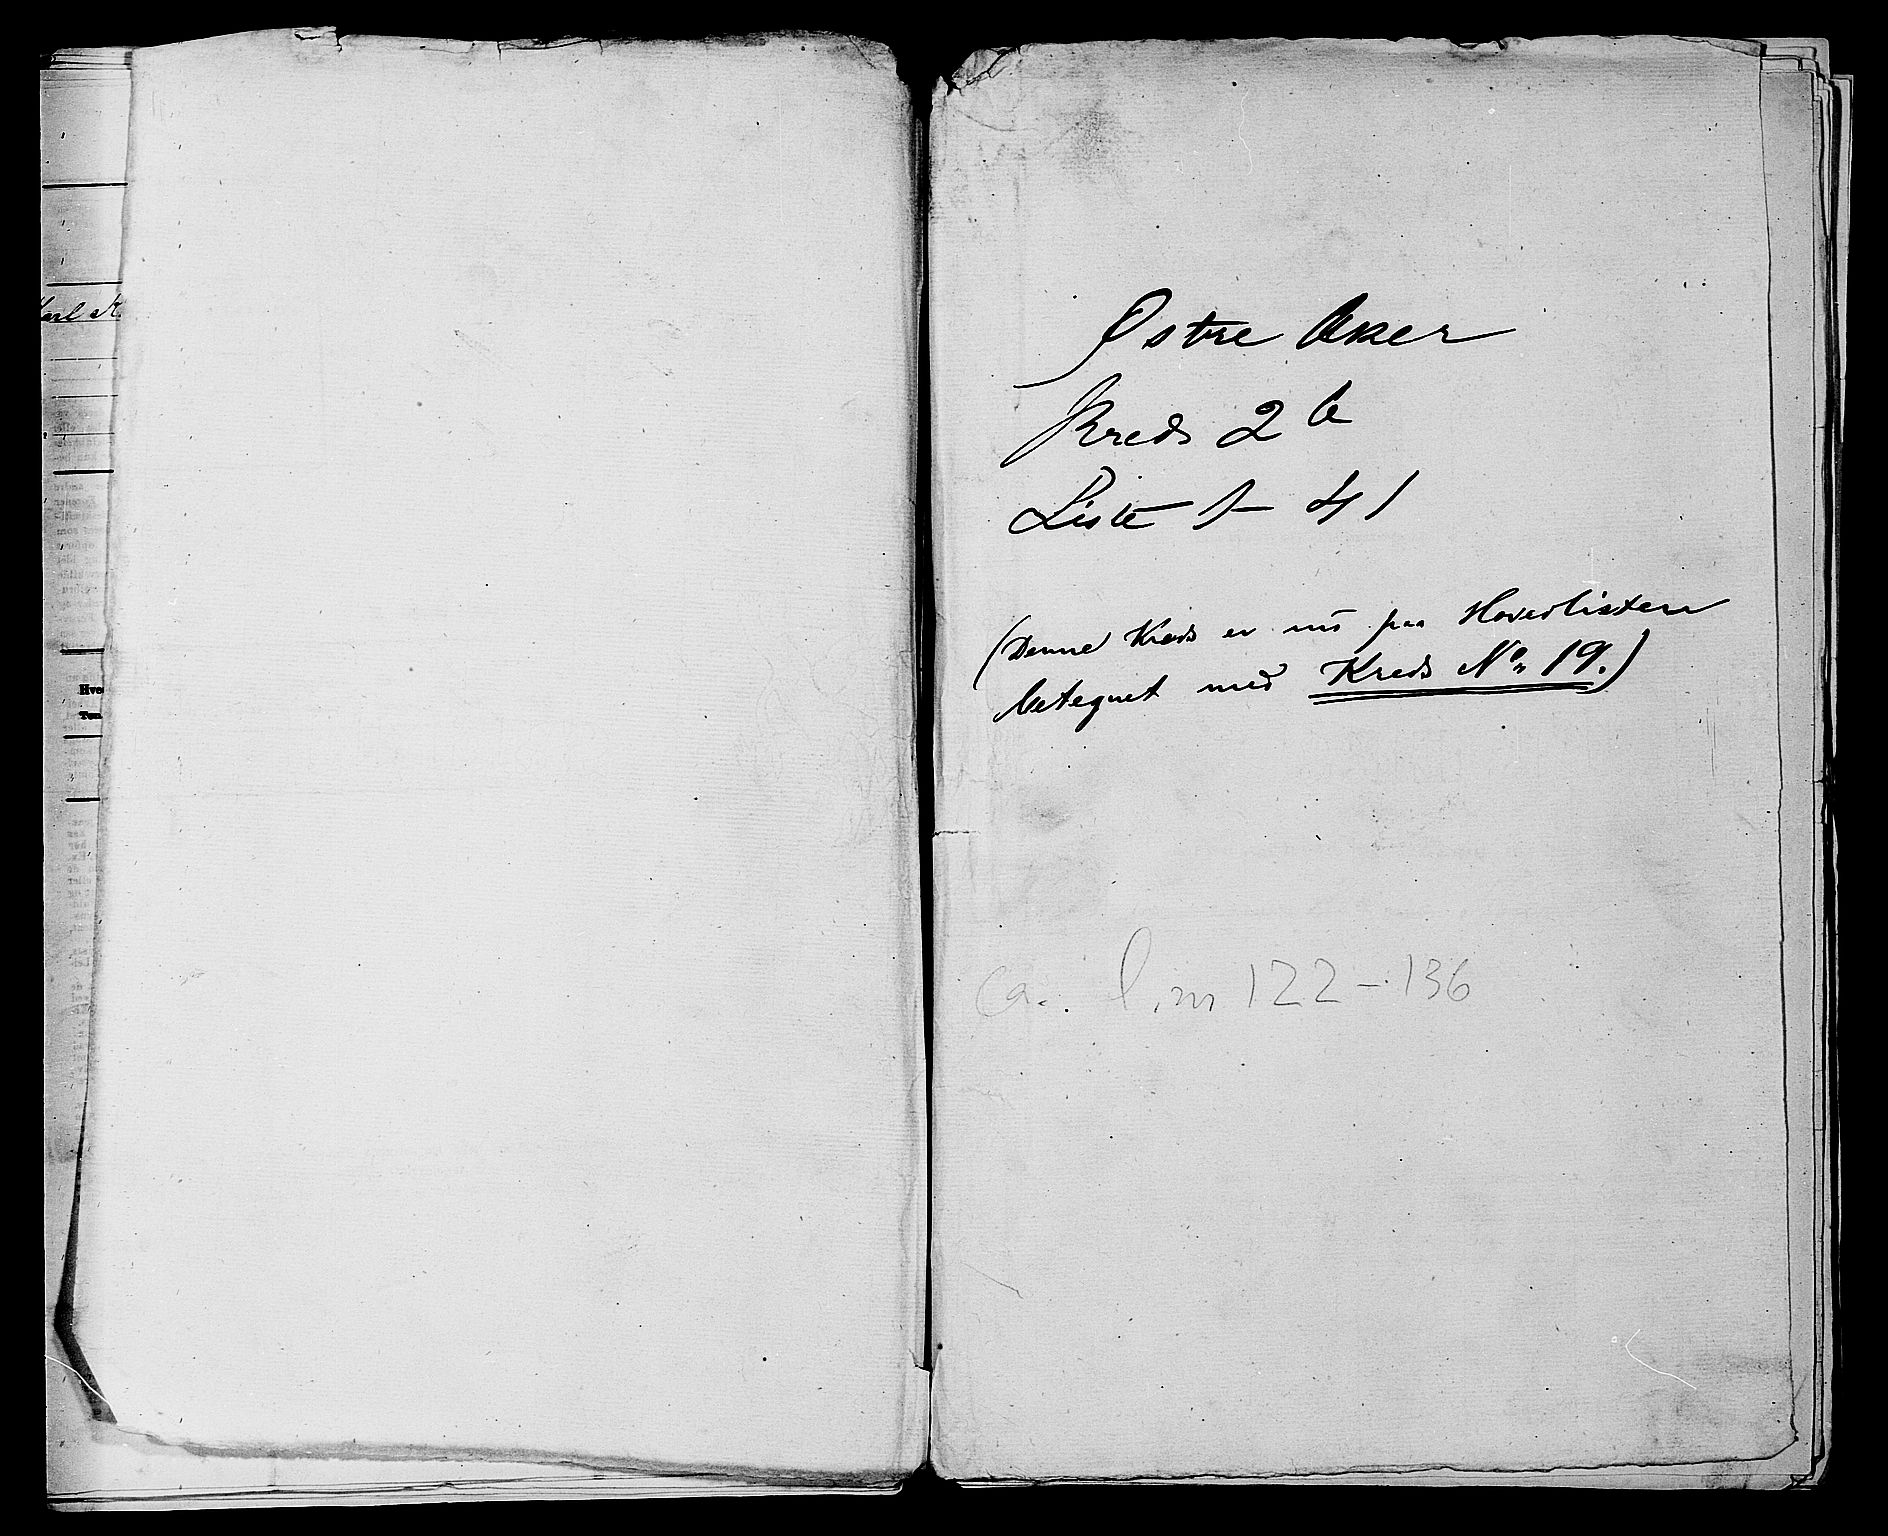 Karl K.
Hve
Tøn
Østre Aker
Kreds 2 b
Liste 1 - 41
(Denne Kreds er nu paa Hovedlisten
betegnet med Kreds No 19.)
Ca. l. nr 122-136